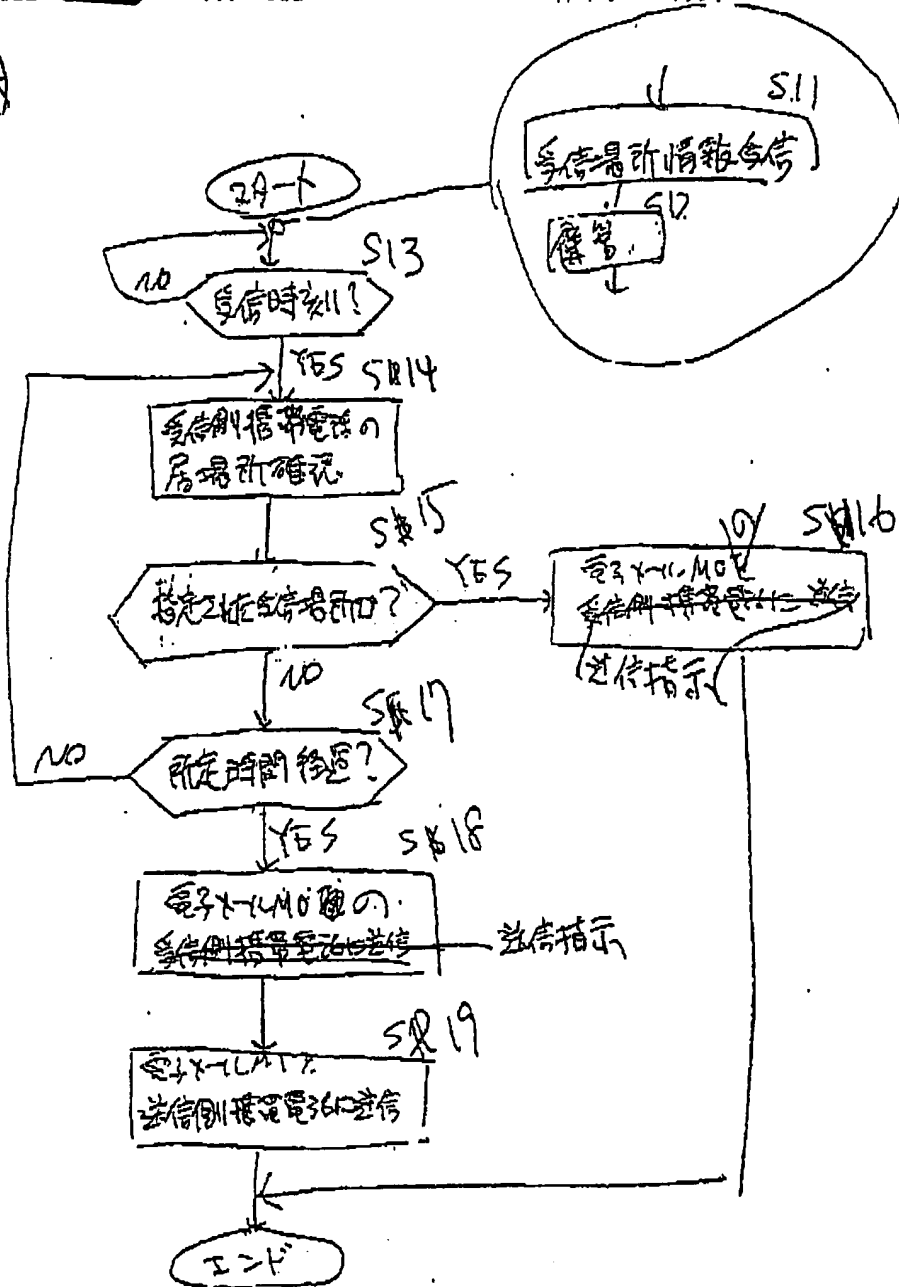 S11
受信場所情報受信
S12
蓄積
スタート
S13
NO
受信時刻?
YES
S14
受信側携帯電話の
居場所確認
S15
指定された受信場所か?
YES
S16
の
電子メールM0を
受信側携帯電話に送信
送信指示
NO
S17
所定時間経過?
NO
YES
S18
電子メールM0の
受信側携帯電話に送信
送信指示
S19
電子メールM1を
送信側携帯電話に送信
エンド